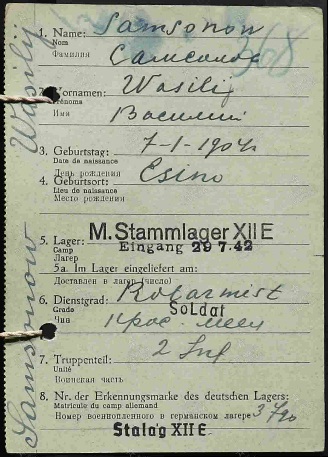 368
1. Name: Samsonow
Nom
Фамилия Самсонов
2. Vornamen: Wasilij
Prénoms
Имя Василий
3. Geburtstag: 7-1-1904
Date de naissance
День рождения
4. Geburtsort: Esino
Lieu de naissance
Место рождения
5. Lager: M. Stammlager XII E
Camp Eingang 29 7.42
Лагерь
5a. Im Lager eingeliefert am:
Доставлен в лагерь (число)
6. Dienstgrad: Rotarmist
Grade Soldat
Чин крас.
7. Truppenteil: 2 Inf
Unité
Воинская часть
8. Nr. der Erkennungsmarke des deutschen Lagers:
Matricule du camp allemand
Номер военнопленного в германском лагере
Stalag XII E
Samsonow Wasilij